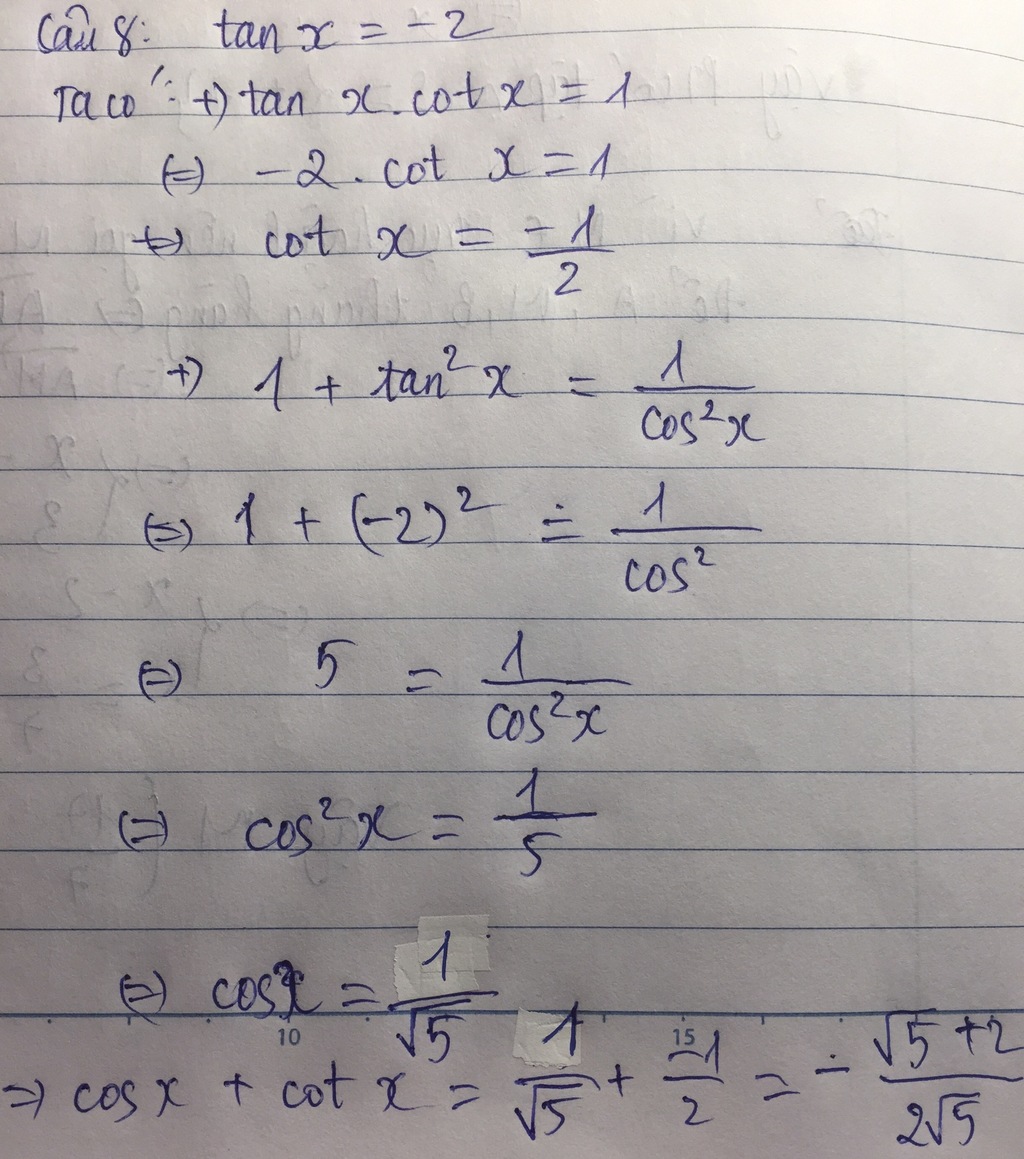 Câu 8: tan x = -2
Ta có: +) tan x . cot x = 1
(=) -2 . cot x = 1
(=) cot x = -1/2
+) 1 + tan² x = 1/cos²x
(=) 1 + (-2)² = 1/cos²
(=) 5 = 1/cos²x
(=) cos²x = 1/5
(=) cosx = 1/√5
10 15
=> cos x + cot x = 1/√5 + -1/2 = - (√5 + 2)/(2√5)